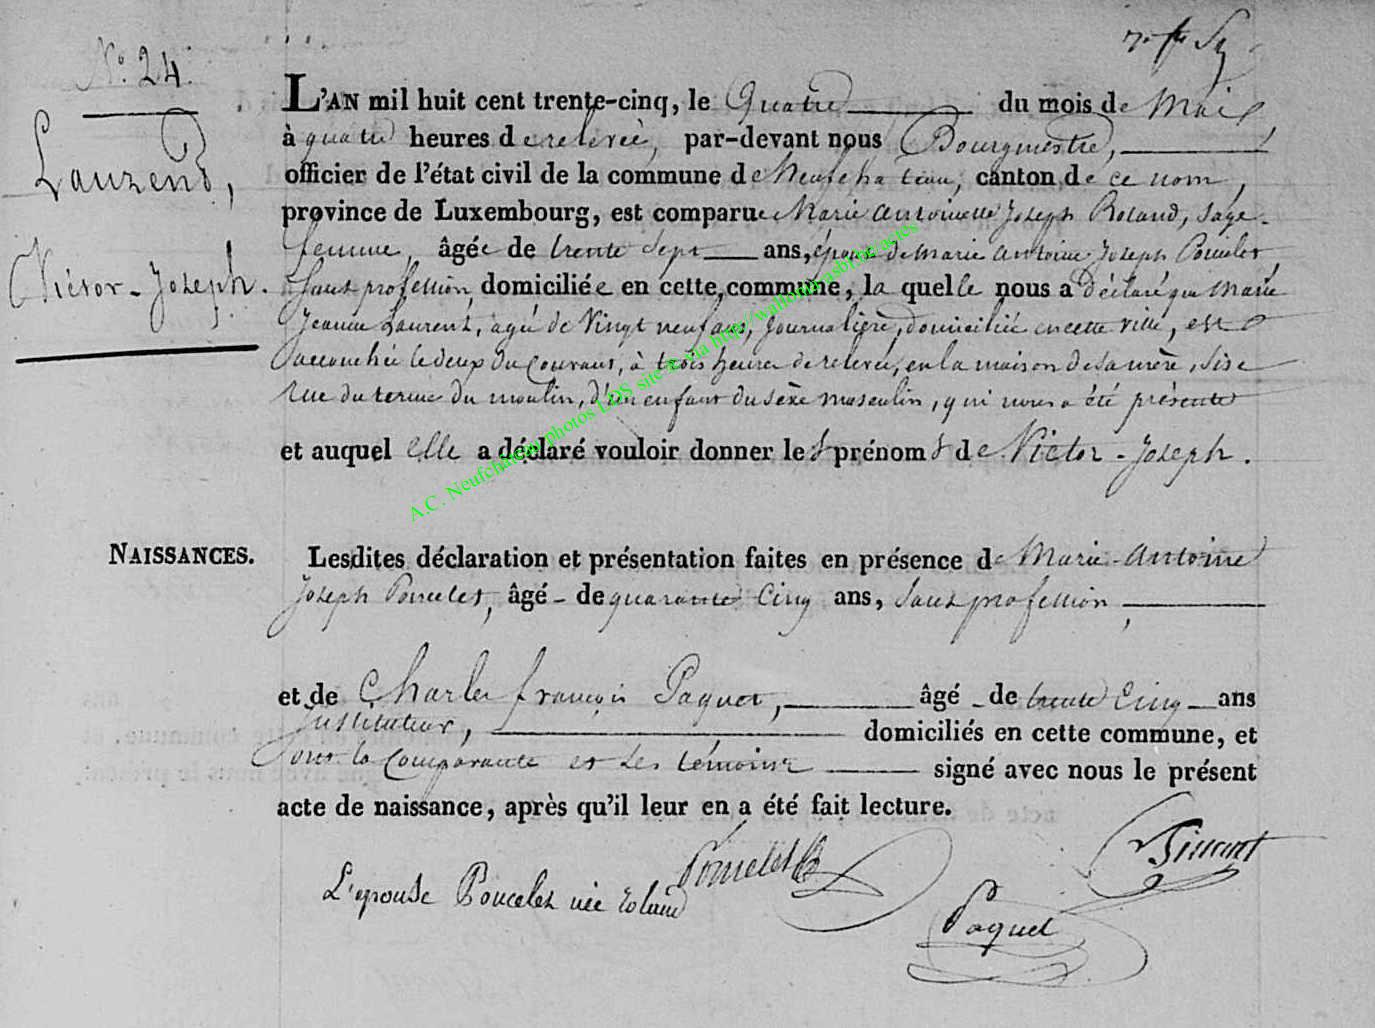 N.° 24.
Laurend,
Victor-Joseph.
L'AN mil huit cent trente-cinq, le Quatre du mois de Mais,
à quatre heures de relevée, par-devant nous Bourgmestre,
officier de l'état civil de la commune de Neufchateau, canton de ce nom,
province de Luxembourg, est comparue Marie antoinette Joseph Roland, sage-
femme, âgée de trente sept ans, épouse de marie antoine Joseph Poncelet,
sans profession, domiciliée en cette commune, la quelle nous a déclaré que Marie
Jeanne Laurent, agée de Vingt neuf ans, Journalière, domiciliée en cette ville, est
accouchée le deux du Courant, à trois heures de relevée, en la maison de sa mère, sise
rue du terme du moulin, d'un enfant du sèxe masculin, qui nous a été présenté
et auquel elle a déclaré vouloir donner les prénoms de Victor-Joseph.
NAISSANCES. Lesdites déclaration et présentation faites en présence de Marie-antoine
Joseph Poncelet, âgé de quarante Cinq ans, sans profession,
et de Charles françois Paquet, âgé de trente Cinq ans
instituteur, domiciliés en cette commune, et
ont la Comparante et les témoins signé avec nous le présent
acte de naissance, après qu'il leur en a été fait lecture.
L'epouse Poncelet née roland Poncelet
Paquet
A.C. Neufchâteau photos LDS site & via http://wallonia.asbl.be/actes